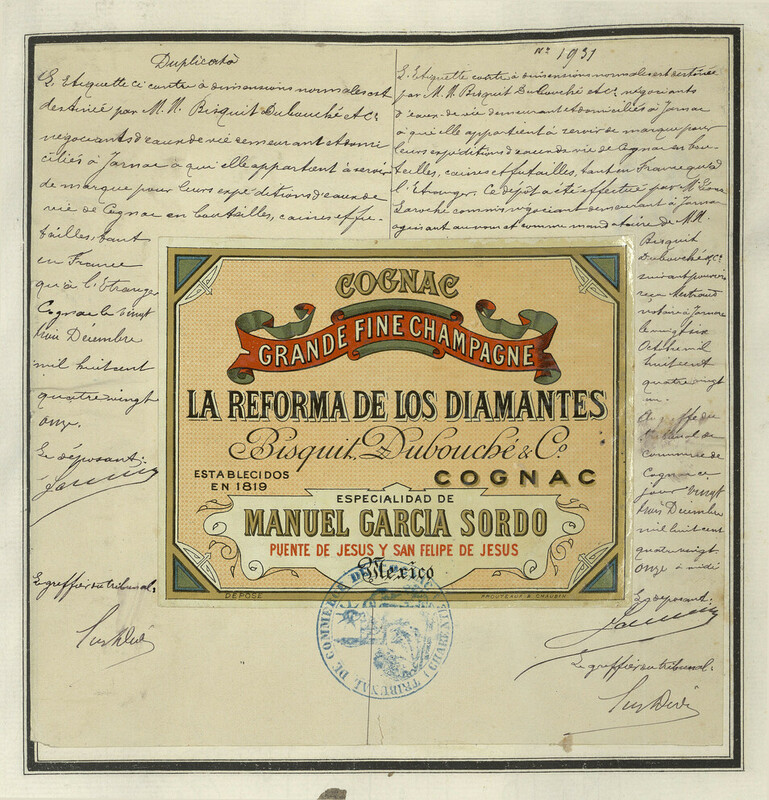 Duplicata
L'Etiquette ci contre à dimensions normales est
destinée par M.M. Bisquit Dubouché et Cie
négociants d'eaux de vie demeurant et domi
ciliés à Jarnac à qui elle appartient à servir
de marque pour leurs expéditions d'eaux de
vie de Cognac en bouteilles, caisses et fu-
tailles, tant
en France
qu'à l'Etranger
Cognac le vingt
trois Décembre
mil huit cent
quatre vingt
onze.
Le déposant:
Le greffier du tribunal:
No 1931
L'Etiquette contre à dimensions normales est destinée
par M.M. Bisquit Dubouché et Cie négociants
d'eaux-de-vie demeurant et domiciliés à Jarnac
à qui elle appartient à servir de marque pour
leurs expéditions d'eaux de vie de Cognac en bou-
teilles, caisses et futailles, tant en France qu'à
l'Etranger. Ce dépôt a été effectué par M.
Laroche commis négociant demeurant à Jarnac
agissant au nom et comme mandataire de M.M.
Bisquit
Dubouché & Cie
suivant pouvoir
reçu
notaire à Jarnac
le vingt six
Octobre mil
huit cent
quatre vingt
un.
Au greffe du
tribunal de
commerce de
Cognac ce
jour vingt
trois Décembre
mil huit cent
quatre vingt
onze à midi
Le déposant:
Le greffier du tribunal:
COGNAC
GRANDE FINE CHAMPAGNE
LA REFORMA DE LOS DIAMANTES
Bisquit, Dubouché & Co.
ESTABLECIDOS
EN 1819
COGNAC
ESPECIALIDAD DE
MANUEL GARCIA SORDO
PUENTE DE JESUS Y SAN FELIPE DE JESUS
Mexico
DÉPOSÉ
TRIBUNAL DE COMMERCE
(CHARENTE)